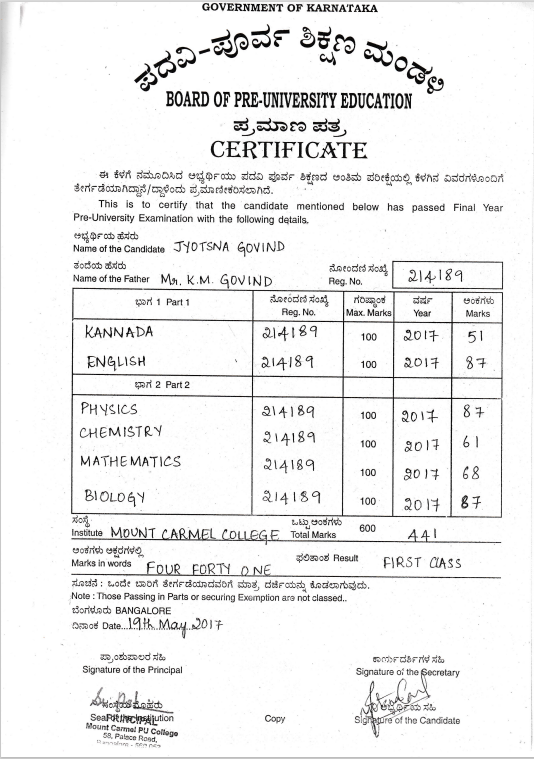 GOVERNMENT OF KARNATAKA
ಪದವಿ-ಪೂರ್ವ ಶಿಕ್ಷಣ ಮಂಡಳಿ
BOARD OF PRE-UNIVERSITY EDUCATION
ಪ್ರಮಾಣ ಪತ್ರ
CERTIFICATE
ಈ ಕೆಳಗೆ ನಮೂದಿಸಿದ ಅಭ್ಯರ್ಥಿಯು ಪದವಿ ಪೂರ್ವ ಶಿಕ್ಷಣದ ಅಂತಿಮ ಪರೀಕ್ಷೆಯಲ್ಲಿ ಕೆಳಗಿನ ವಿವರಗಳೊಂದಿಗೆ
ತೇರ್ಗಡೆಯಾಗಿದ್ದಾನೆ/ದ್ದಾಳೆಂದು ಪ್ರಮಾಣೀಕರಿಸಲಾಗಿದೆ.
This is to certify that the candidate mentioned below has passed Final Year
Pre-University Examination with the following details.
ಅಭ್ಯರ್ಥಿಯ ಹೆಸರು
Name of the Candidate JYOTSNA GOVIND
ತಂದೆಯ ಹೆಸರು ನೋಂದಣಿ ಸಂಖ್ಯೆ
Name of the Father Mr. K.M. GOVIND Reg. No. 214189
ಭಾಗ 1 Part 1 ನೋಂದಣಿ ಸಂಖ್ಯೆ Reg. No. ಗರಿಷ್ಠಾಂಕ Max. Marks ವರ್ಷ Year ಅಂಕಗಳು Marks
KANNADA 214189 100 2017 51
ENGLISH 214189 100 2017 87
ಭಾಗ 2 Part 2
PHYSICS 214189 100 2017 87
CHEMISTRY 214189 100 2017 61
MATHEMATICS 214189 100 2017 68
BIOLOGY 214189 100 2017 87
ಸಂಸ್ಥೆ ಒಟ್ಟು ಅಂಕಗಳು
Institute MOUNT CARMEL COLLEGE Total Marks 600 441
ಅಂಕಗಳು ಅಕ್ಷರಗಳಲ್ಲಿ
Marks in words FOUR FORTY ONE ಫಲಿತಾಂಶ Result FIRST CLASS
ಸೂಚನೆ : ಒಂದೇ ಬಾರಿಗೆ ತೇರ್ಗಡೆಯಾದವರಿಗೆ ಮಾತ್ರ ದರ್ಜೆಯನ್ನು ಕೊಡಲಾಗುವುದು.
Note : Those Passing in Parts or securing Exemption are not classed..
ಬೆಂಗಳೂರು BANGALORE
ದಿನಾಂಕ Date...19th May 2017
ಪ್ರಾಂಶುಪಾಲರ ಸಹಿ ಕಾರ್ಯದರ್ಶಿಗಳ ಸಹಿ
Signature of the Principal Signature of the Secretary
ಸಂಸ್ಥೆಯ ಮೊಹರು ಅಭ್ಯರ್ಥಿಯ ಸಹಿ
Seal of the Institution Copy Signature of the Candidate
PRINCIPAL
Mount Carmel PU College
58, Palace Road,